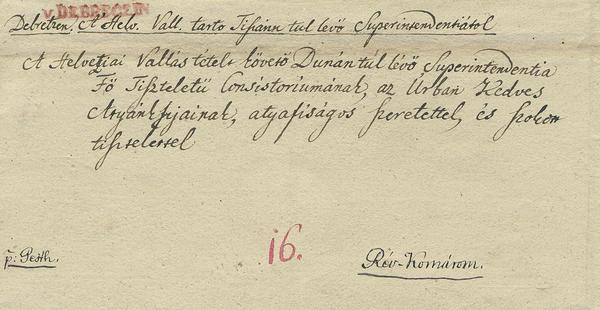 v. DEBRECZIN
Debretzen. A Helv. Vall. tarto Tiszánn tul levő Superintendentiátol
A Helvetziai Vallás tételt követő Dunán túl lévő Superintendentia
Fő Tiszteletű Consistoriumának, az Úrban Kedves
Atyánkfijainak, atyafiságos szeretettel, és szokott
tisztelettel
16.
p: Pesth.
Rév-Komárom.